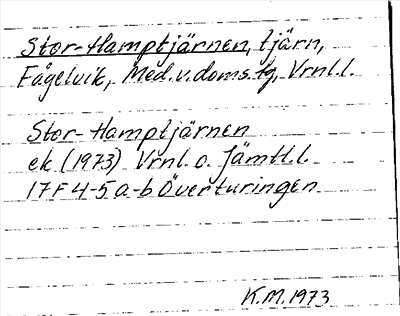 Stor-Hamptjärnen, tjärn,
Fågelvik, Med.v.doms.tg, Vrnl.l.
Stor-Hamptjärnen
ek (1973) Vrnl. o. Jämtl.l.
17F 4-5 a-b Överturingen
K.M. 1973